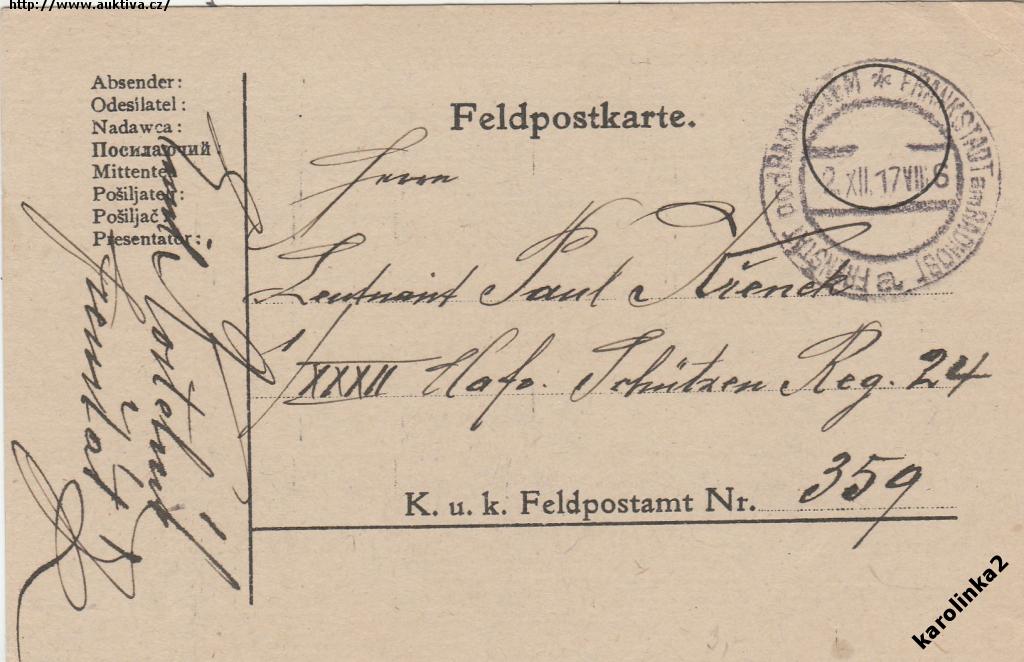 http://www.auktiva.cz/
Absender:
Odesílatel:
Nadawca:
Посилаючий:
Mittente:
Pošiljatelj:
Pošiljač:
Presentator:
Feldpostkarte.
FRANKSTADT am RADHOST
FRENŠTÁT pod RADHOŠTĚM
2.XII.17 VIII 6
Herrn
Leutnant Paul Křenek
XXXII Schützen Reg. 24
K. u. k. Feldpostamt Nr. 359
karolinka2